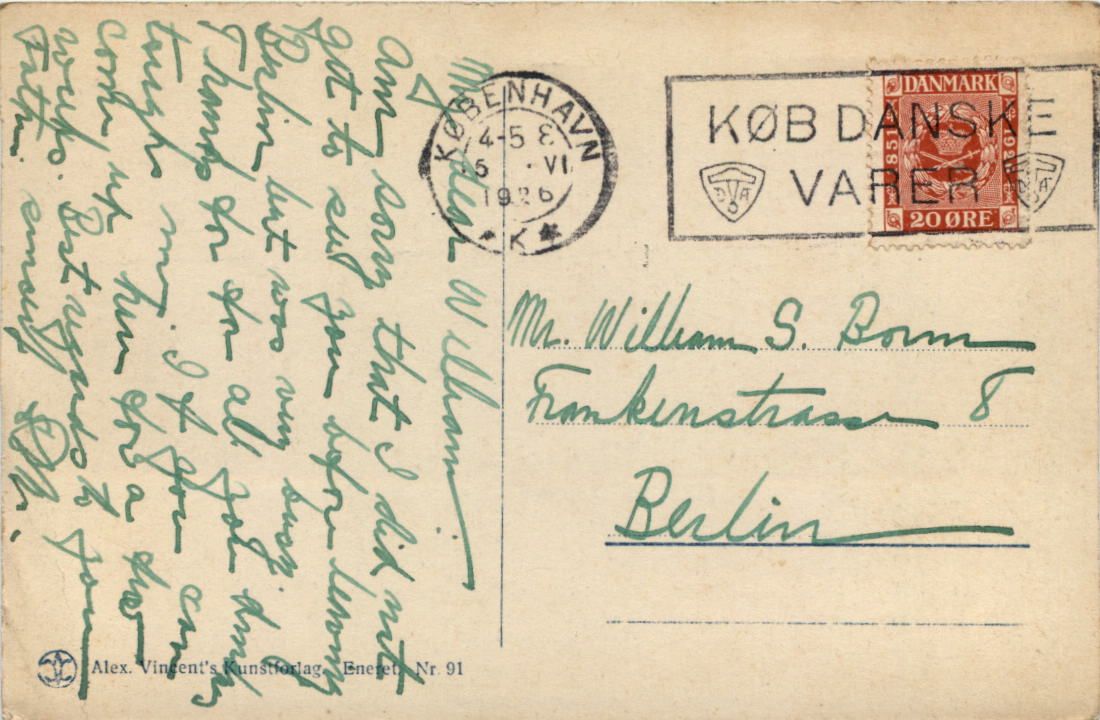 My dear William.
Am sorry that I did not
get to see you before leaving
Berlin but was very busy.
Thanks for for all you
trught me. If you can
come up here for a few
weeks. Best regards to your
Father. sincerely
KØBENHAVN
4-5 E
5 . VI
1926
* K *
KØB DANSKE
VARER
D V A
DANMARK
1851
1926
20 ØRE
Mr. William S. Borm
Frankenstrasse 8
Berlin
Alex. Vincent's Kunstforlag. Eneret. Nr. 91